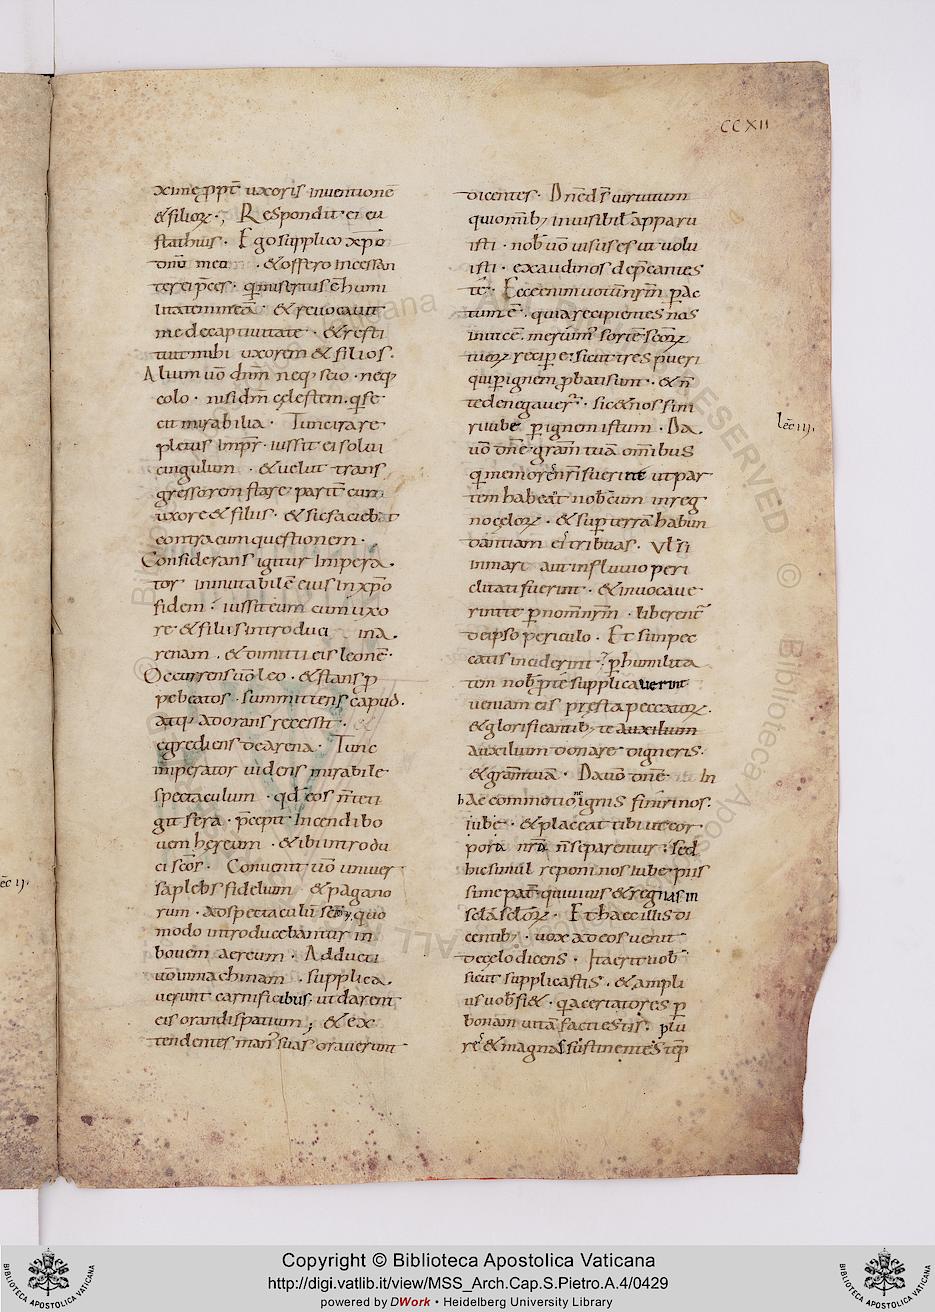 CCXII
ximę ꝓpt̄ uxoris inuentionē
& filioꝝ ·; Respondit ei eu
stathius · Ego supplico xp̄o
dn̄o meo · & offero incessan
ter ei p̄ces · q̄ misertus ē humi
litatem meā · & reuocauit
me de captiuitate · & resti
tuit mihi uxorem & filios ·
Alium uō dm̄ neq; scio · neq;
colo · nisi dm̄ cęlestem · q̄ fe
cit mirabilia · Tunc ira re
pletus impr̄ · iussit ei solui
cingulum · & uelut trans
gressorem stare parit̄ cum
uxore & filiis · & sic faciebat
contra eum questionem ·
Considerans igitur Impera
tor inmutabilē eius in xp̄o
fidem · iussit eum cum uxo
re & filiis introduci in a
renam · & dimitti eis leonē ·
Occurrens uō leo · & stans ꝓ
pe beatos · summittens capud ·
atq; adorans recessit ·
egrediens de arena · Tunc
imperator uidens mirabile
spectaculum · qđ eos n̄ teti
git fera · p̄cepit incendi bo
uem hereum · & ibi introdu
ci sc̄os · Conuenit uō uniuer
sa plebs fidelium & pagano
rum · ad spectaculū sc̄oꝝ, quo
modo introducebantur in
bouem aereum · Adducti
uō in machinam · supplica
uerunt carnificibus · ut darent
eis orandi spatium ; & ex
tendentes man' suas orauerunt
dicentes · Dn̄e ds̄ uirtutum
qui omīb; inuisibil' apparu
isti · nob' uō uisus es ut uolu
isti · exaudi nos dep̄cantes
tē · Ecce enim uotum nr̄m p̄ac
tum ē · quia recipientes nos
inuicē · meruim' sortē sc̄oꝝ
tuoꝝ recipere · sicut tres pueri
qui ꝑ ignem ꝓbati sunt · & n̄
te denegauer' · sic & nos fini
ri iube ꝑ ignem istum · Da
uō dn̄e grām tuā omnibus
q̄ memores nr̄i fuerint ut par
tem habeat nobcum in reg
no cęloꝝ · & sup terrā habun
dantiam ei tribuas · Vl' si
in mari aut in fluuio peri
clitati fuerint · & inuocaue
rint te ꝑ nom̄ nr̄m · liberent
de ipso periculo · Et si in pec
catis inciderint · ꝑ humilita
tem nob' p̄te supplicauerint
ueniam eis pręsta peccatoꝝ ·
& glorificantib; te auxilium
auxilium donare digneris ·
& grām tuā · Da uō dn̄e In
hac commotionē ignis finiri nos ·
iube · & placeat tibi ut cor
pora nr̄a n̄ separentur : sed
hic simul reponi nos iube piis
sime pat̄ · qui uiuis & regnas in
scl̄a scl̄oꝝ · Et haec illis di
centib; · uox ad eos uenit
de cęlo dicens · Ita erit uob'
sicut supplicastis · & ampli
us uob' fi& · q̄a certatores ꝑ
bonam uitā facti estis · plu
res & magnas sustinentes tēp
lec̄ iij ·